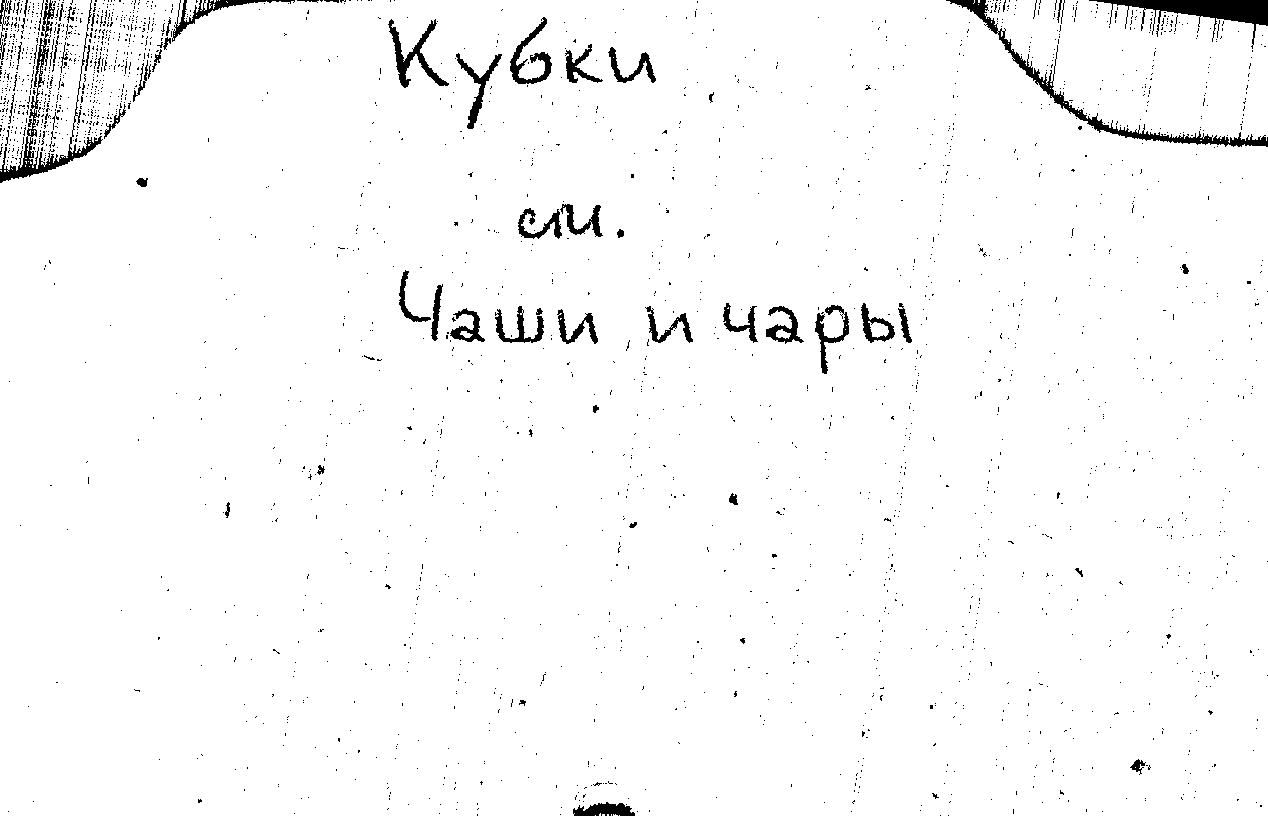 Кубки
см.
Чаши и чары